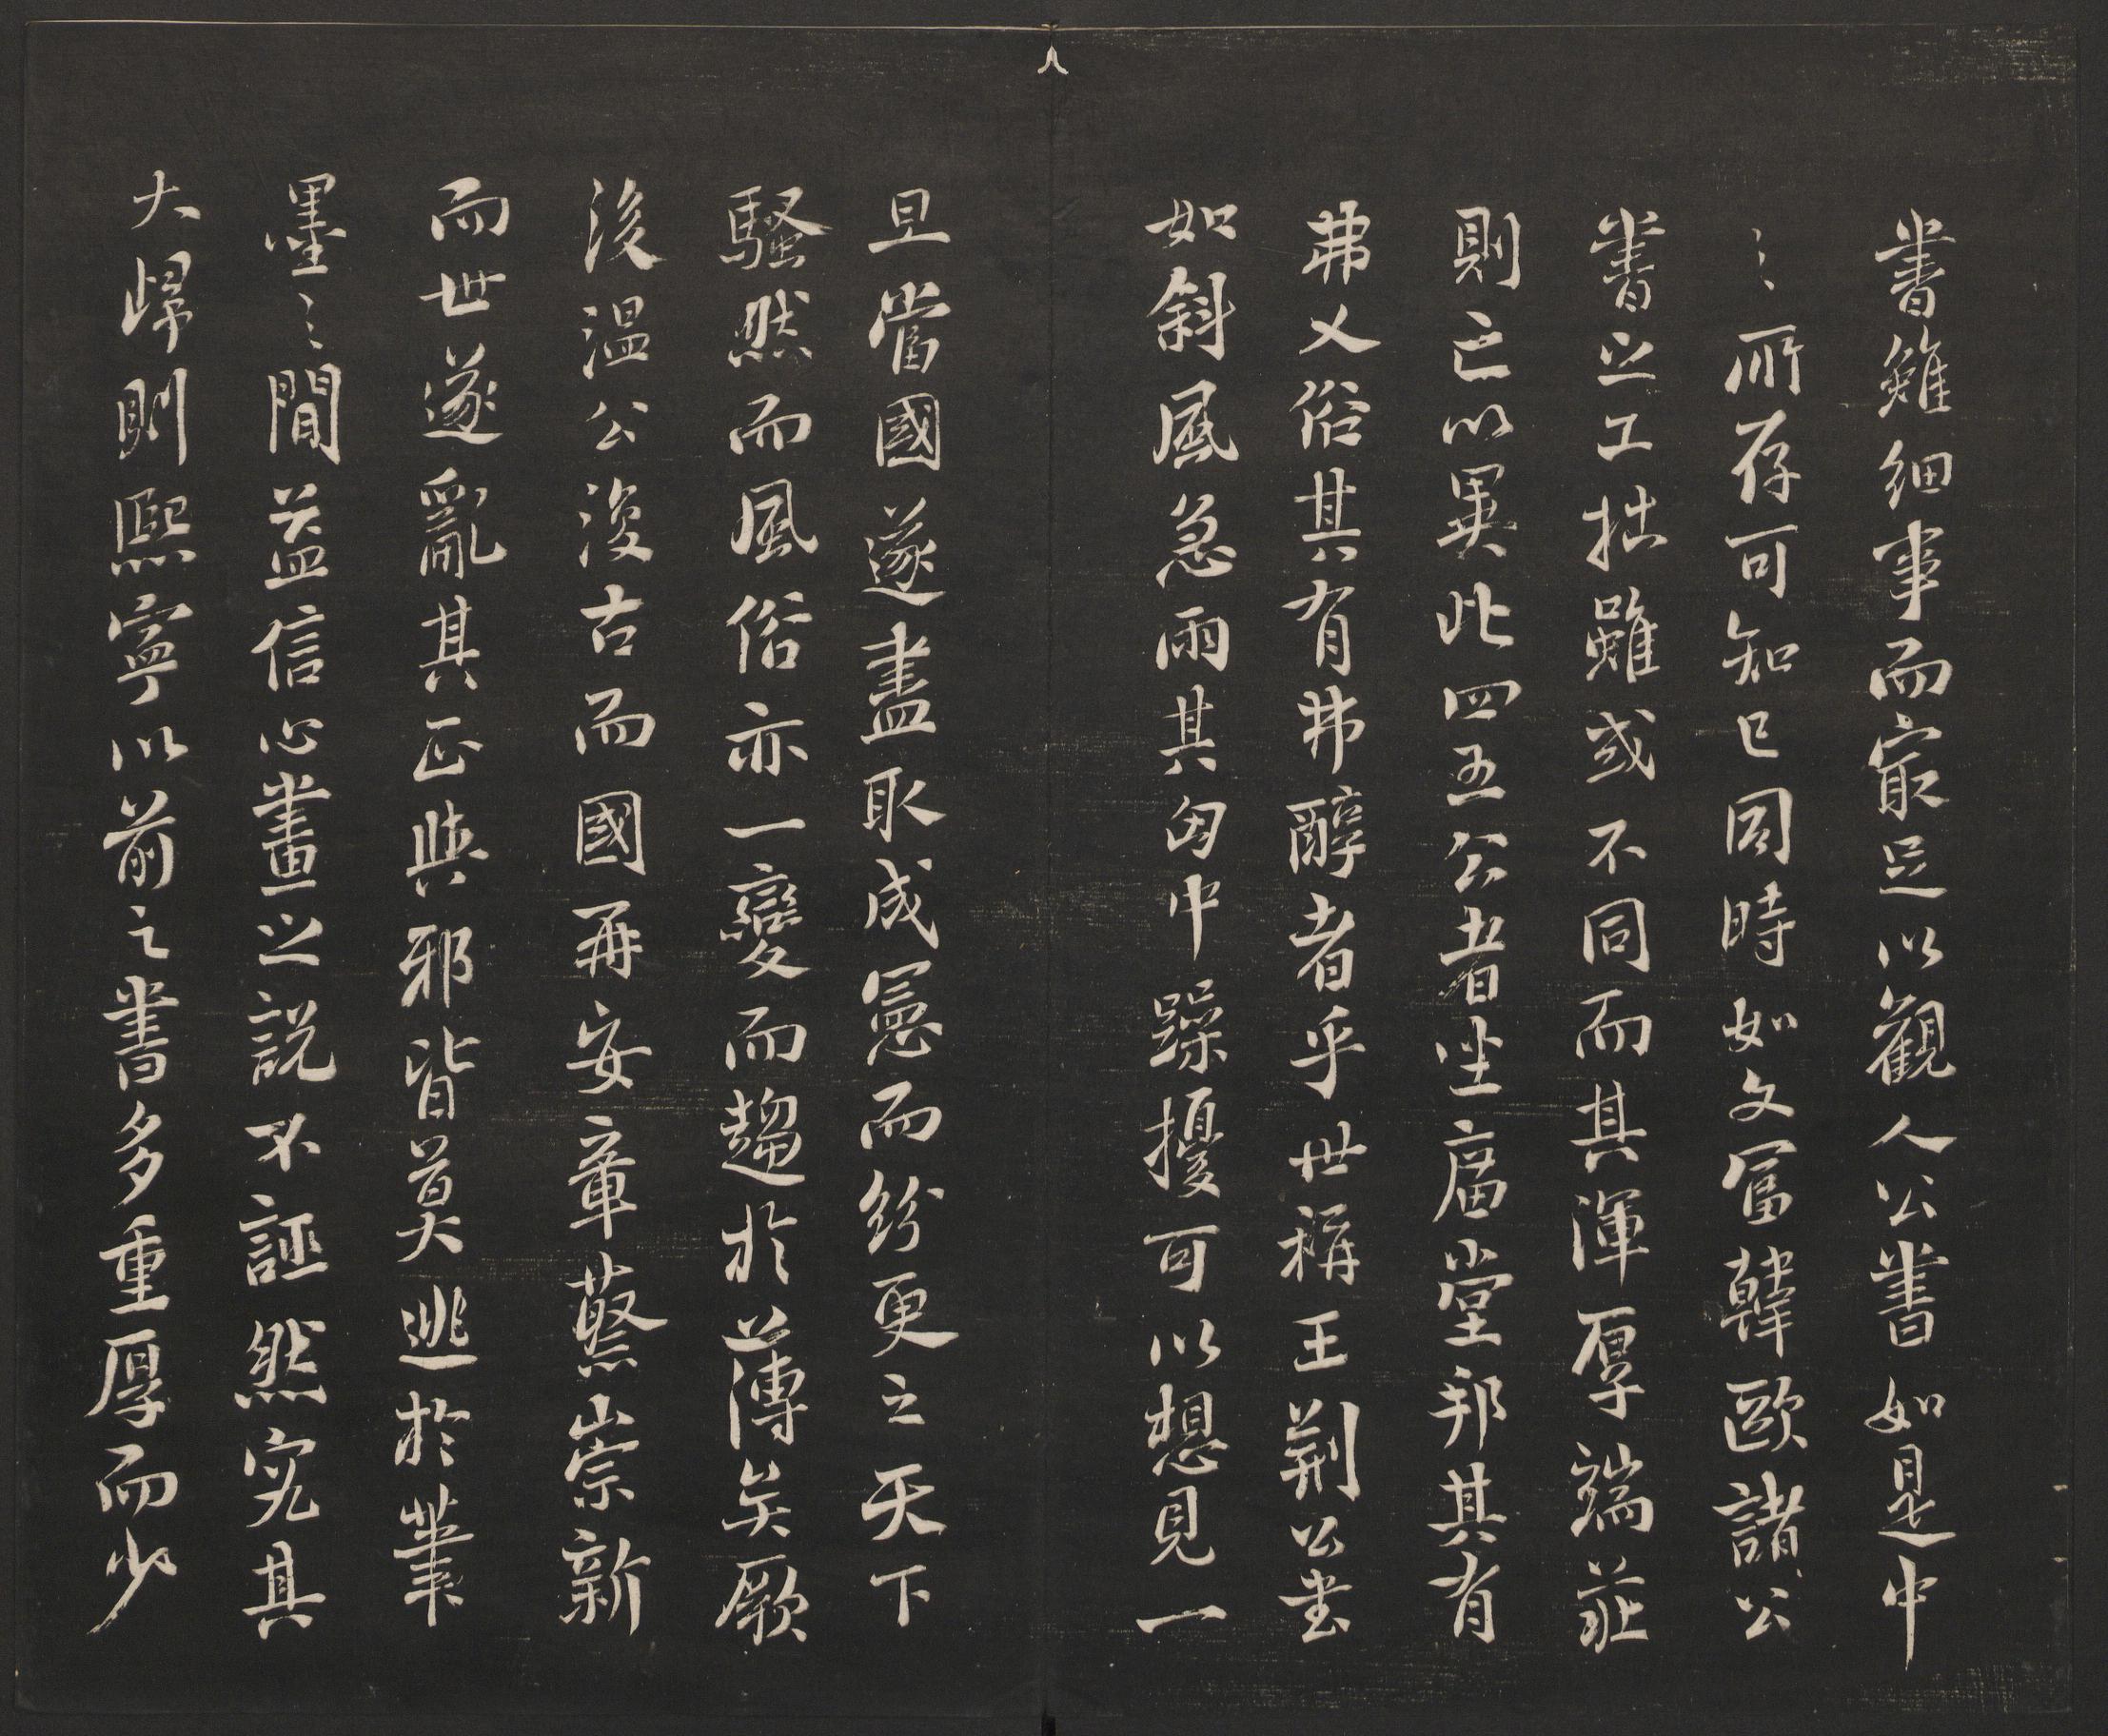 書雖細事而㝡足以觀人公書如是中
〻所存可知已同時如文富韓歐諸公
書之工拙雖或不同而其渾厚端莊
則亡以異此四五公者坐廟堂邦其有
弗乂俗其有弗醇者乎世稱王荆公書
如斜風急雨其匈中躁擾可以想見一
旦當國遂盡取成憲而紛更之天下
騷然而風俗亦一變而趨於薄矣厥
後温公復古而國再安章蔡崇新
而世遂亂其正與邪皆莫逃於筆
墨〻間益信心畫之説不誣然究其
大歸則熙寧以前之書多重厚而少